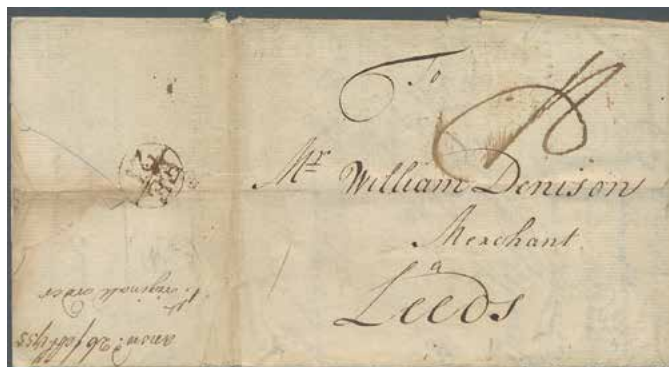 To
Mr William Denison
Merchant
a
Leeds
originall order
26 feb 1755